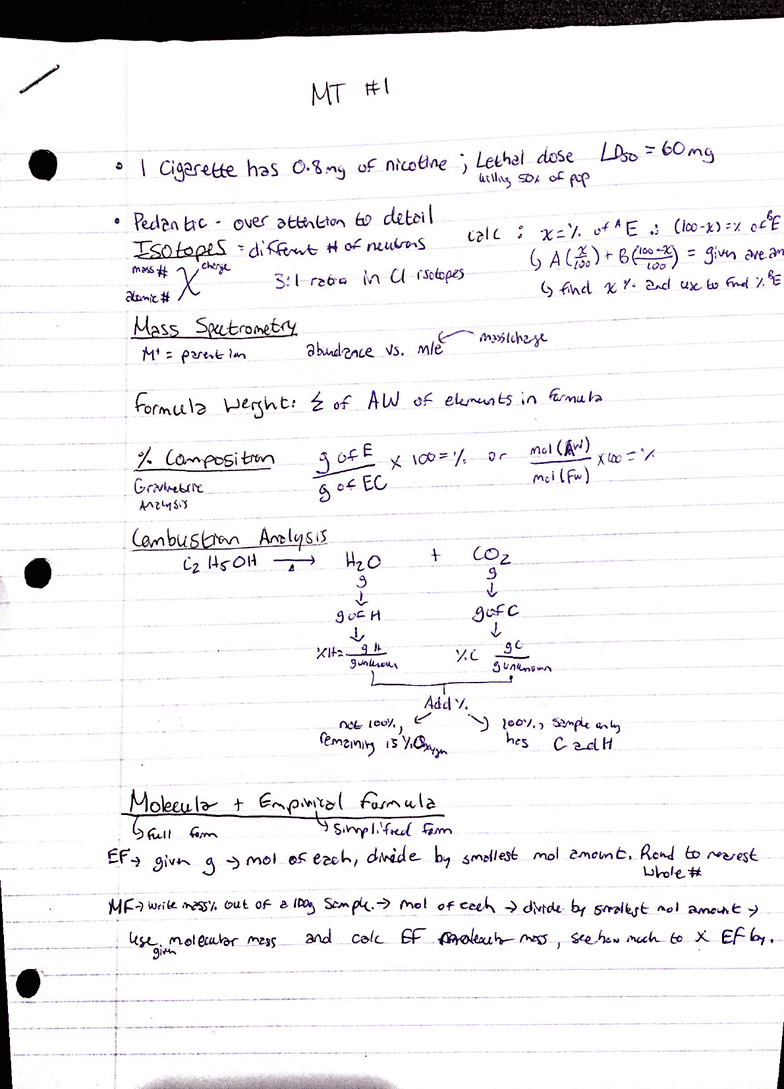 MT #1
• 1 Cigarette has 0.8mg of nicotine ; Lethal dose LD50 = 60mg
killing 50% of pop
• Pedantic - over attention to detail
Isotopes = different # of neutrons
calc : x = % of ᴬE ∴ (100-x) = % of ᴮE
mass # X charge
atomic #
3:1 ratio in Cl isotopes
↳ A(x/100) + B(100-x/100) = given
↳ find x % and use to find % ᴮE
Mass Spectrometry
M⁺ = parent ion abundance vs. m/e ← mass/charge
Formula Weight: Σ of AW of elements in formula
% Composition g of E / g of EC × 100 = % or mol (AW) / mol (FW) × 100 = %
Gravimetric
Analysis
Combustion Analysis
C2H5OH →Δ H2O + CO2
g g
↓ ↓
g of H g of C
↓ ↓
%H = g H / g unknown %C g C / g unknown
Add %
not 100%, ↙ ↘ 100%, sample only
remaining is % Oxygen has C and H
Molecular + Empirical Formula
↳ Full form ↳ Simplified form
EF → given g → mol of each, divide by smallest mol amount. Round to nearest
whole #
MF → write mass% out of a 100g sample. → mol of each → divide by smallest mol amount →
use given molecular mass and calc EF mass, see how much to X EF by.